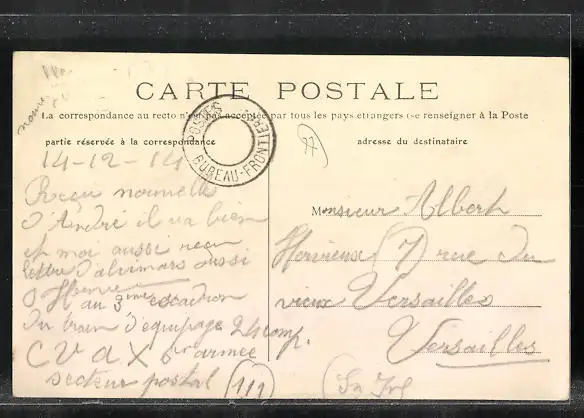 CARTE POSTALE
La correspondance au recto n'est pas acceptée par tous les pays étrangers (se renseigner à la Poste
partie réservée à la correspondance
adresse du destinataire
POSTES
BUREAU-FRONTIERE
14-12-14
Reçu nouvelle
d'André il va bien
et moi aussi reçu
lettre aussi
au 3ème escadron
du train d'équipage 24 comp.
C V a X 6e armée
secteur postal 111
Monsieur Albert
7 rue du
vieux Versailles
Versailles